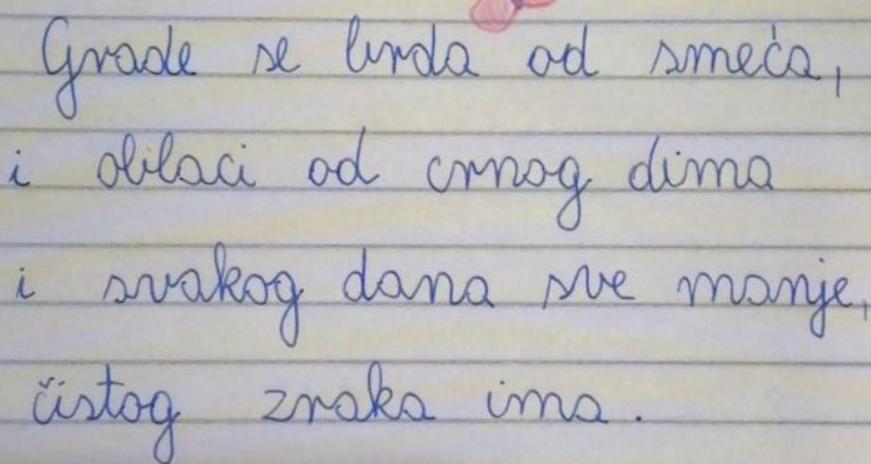 Grade se brda od smeća,
i oblaci od crnog dima
i svakog dana sve manje,
čistog zraka ima.